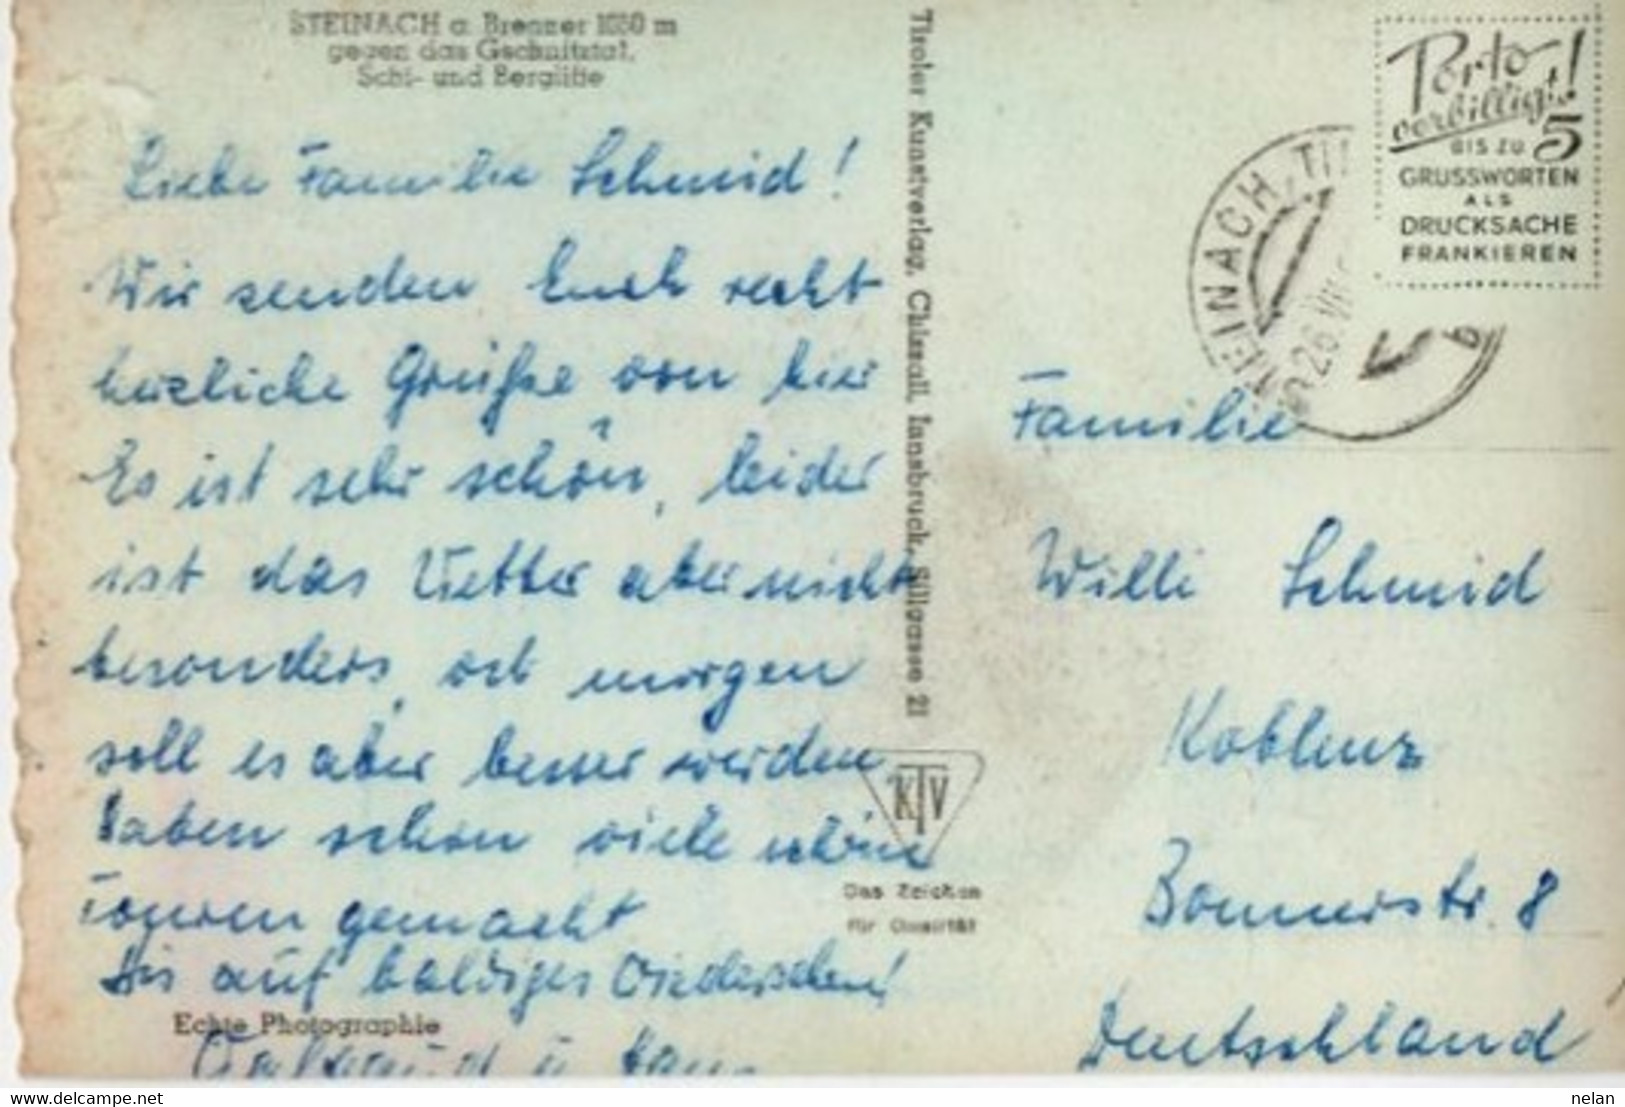 STEINACH a. Brenner 1050 m
gegen das Gschnitztal,
Schi- und Berglifte
Liebe Familie Schmid!
Wir senden Euch recht
herzliche Grüße von hier
Es ist sehr schön, leider
ist das Wetter aber nicht
besonders, ab morgen
soll es aber besser werden
Haben schon viele schöne
Touren gemacht
Bis auf baldiges Wiedersehen!
Echte Photographie
u.
Tiroler Kunstverlag, Chizzali, Innsbruck, Sillgasse 21
KTV
Das Zeichen
für Qualität
Porto
verbilligt!
BIS ZU 5
GRUSSWORTEN
ALS
DRUCKSACHE
FRANKIEREN
STEINACH, TI
26.VII
Familie
Willi Schmid
Koblenz
Bonnerstr. 8
Deutschland
www.delcampe.net
nelan